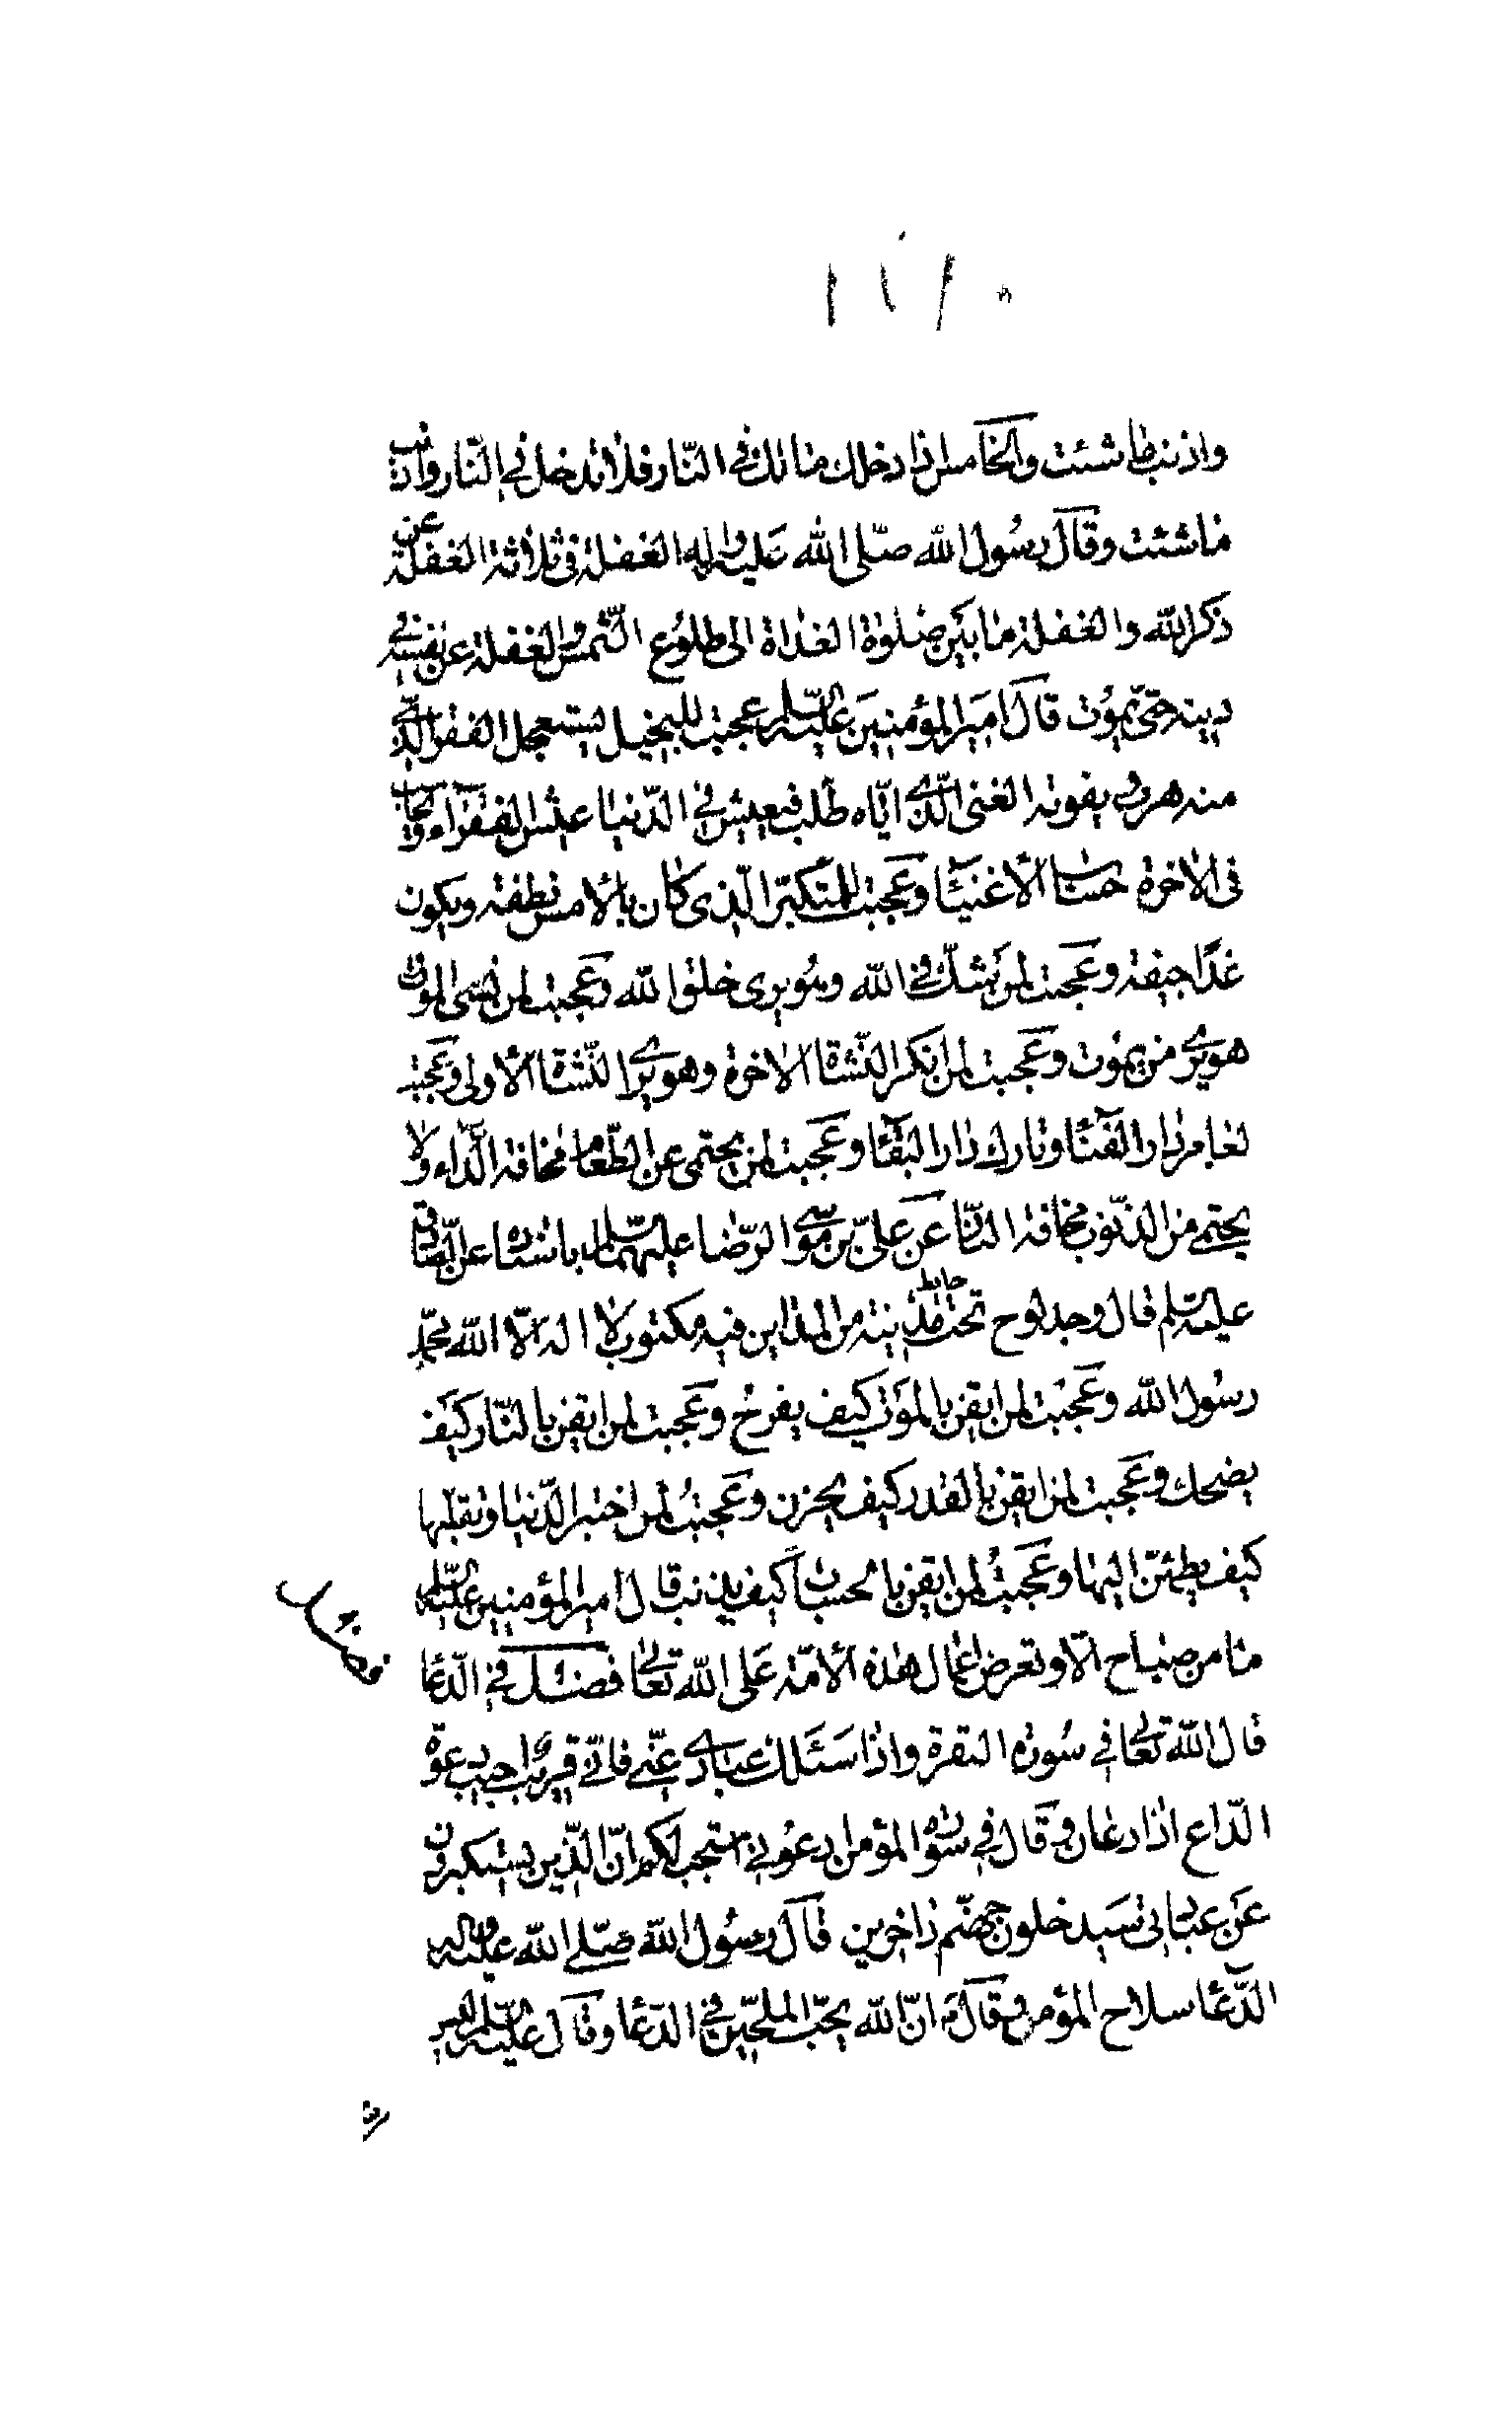 واذنب ما شئت والخامس اذا ادخلك مالك في النّار فلا تدخل في النّار واذنب
ما شئت وقال رسول الله صلّى الله عليه واله الغفلة في ثلاثة الغفلة عن
ذكر الله والغفلة ما بين صلوة الغداة الى طلوع الشّمس والغفلة عن نفسه في
دينه حتّى يموت قال امير المؤمنين عليه السّلم عجبت للبخيل يستعجل الفقر الّذي
منه هرب ويفوته الغنى الّذي ايّاه طلب فيعيش في الدّنيا عيش الفقراء ويحاسب
في الاخرة حساب الأغنيا وعجبت للمتكبّر الّذي كان بالأمس نطفة ويكون
غدًا جيفة وعجبت لمن يشكّ في الله وهو يرى خلق الله وعجبت لمن نسى الموت
هو يرى من يموت وعجبت لمن انكر النّشأة الاخرة وهو يرى النّشأة الأولى وعجبت
لعامر دار الفنآء وتارك دار البقآء وعجبت لمن يحتمى عن الطّعام مخافة الدّاء ولا
يحتمي من الذّنوب مخافة النّار عن عليّ بن موسى الرّضا عليهما السّلم باسناده عن الصّادق
عليه السّلم قال وجد لوح تحت حايط مدينة من المداين فيه مكتوب لا اله الّا الله محمّد
رسول الله وعجبت لمن ايقن بالموت كيف يفرح وعجبت لمن ايقن بالنّار كيف
يضحك وعجبت لمن ايقن بالقدر كيف يحزن وعجبتُ لمن اختبر الدّنيا وتقلّبها
كيف يطمئنّ اليها وعجبتُ لمن ايقن بالحساب كيف يذنب قال امير المؤمنين عليه السّلم
ما من صباح الّا وتعرض اعمال هذه الأمّة على الله تعالى فصل في الدّعا
قال الله تعالى في سورة البقرة واذا سئلك عبادي عنّي فانّي قريب اجيب دعوة
الدّاع اذا دعان وقال في سورة المؤمن ادعوني استجب لكم انّ الّذين يستكبرون
عن عبادتي سيدخلون جهنّم داخرين قال رسول الله صلّى الله عليه واله
الدّعا سلاح المؤمن وقال انّ الله يحبّ الملحّين في الدّعا وقال عليه السّلم ليس